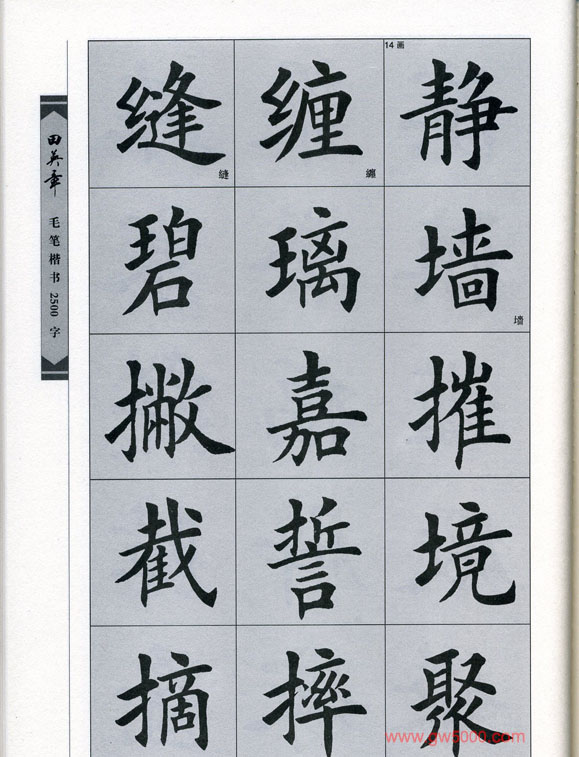 田英章 毛笔楷书 2500 字
14 画
缝 缠 静
縫 纏
碧 璃 墙
撇 嘉 摧
截 誓 境
摘 摔 聚
www.gw5000.com